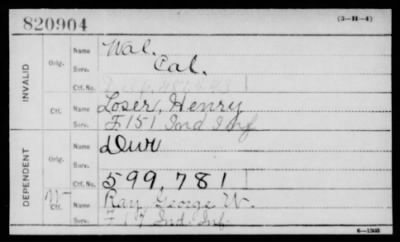 820904
(3-H-4)
INVALID
Orig.
Name Wal.
Serv. Cal.
Ctf. No.
Ctf.
Name Loser, Henry
Serv. F. 151 Ind Inf
DEPENDENT
Orig.
Name
Serv.
Ctf. No. 599,781
W
Ctf.
Name Ray George W.
Serv. F 17 Ind. Inf.